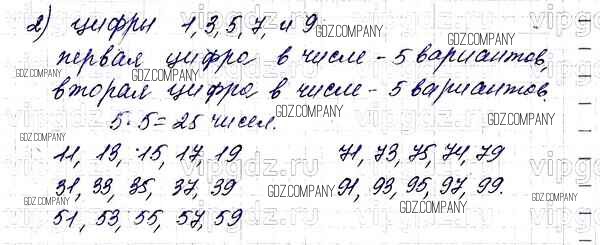 2) цифры 1, 3, 5, 7, и 9.
первая цифра в числе - 5 вариантов,
вторая цифра в числе - 5 вариантов.
5·5=25 чисел.
11, 13, 15, 17, 19
71, 73, 75, 74, 79
31, 33, 35, 37, 39
91, 93, 95, 97, 99.
51, 53, 55, 57, 59
GDZ.COMPANY
GDZ.COMPANY
GDZ.COMPANY
GDZ.COMPANY
GDZ.COMPANY
GDZ.COMPANY
GDZ.COMPANY
GDZ.COMPANY
GDZ.COMPANY
vipgdz.ru